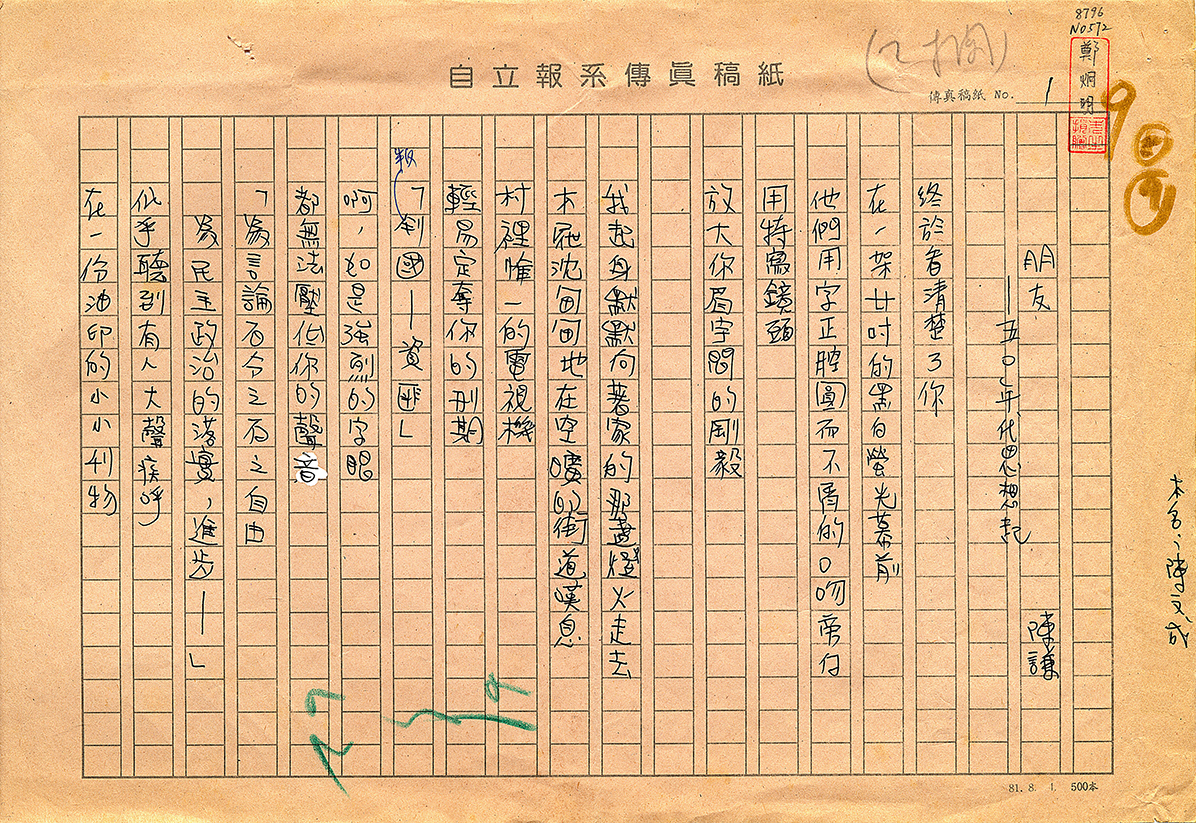 8796
No572
鄭烱明
自立報系傳眞稿紙
傳真稿紙 No. 1
朋友
——五〇年代思想起
陳謙
終於看清楚了你
在一架廿吋的黑白螢光幕前
他們用字正腔圓而不屑的口吻
用特寫鏡頭
放大你眉宇間的剛毅
我起身默默向著家的那盞燈火走去
木屐沈甸甸地在空曠的街道嘆息
村裡唯一的電視機
輕易定奪你的刑期
「叛國——資匪」
啊,如是強烈的字眼
都無法壓低你的聲音
「為言論百分之百之自由
為民主政治的落實,進步——」
似乎聽到有人大聲疾呼
在一份油印的小小刊物
本名:陳文成
81. 8. 1. 500本